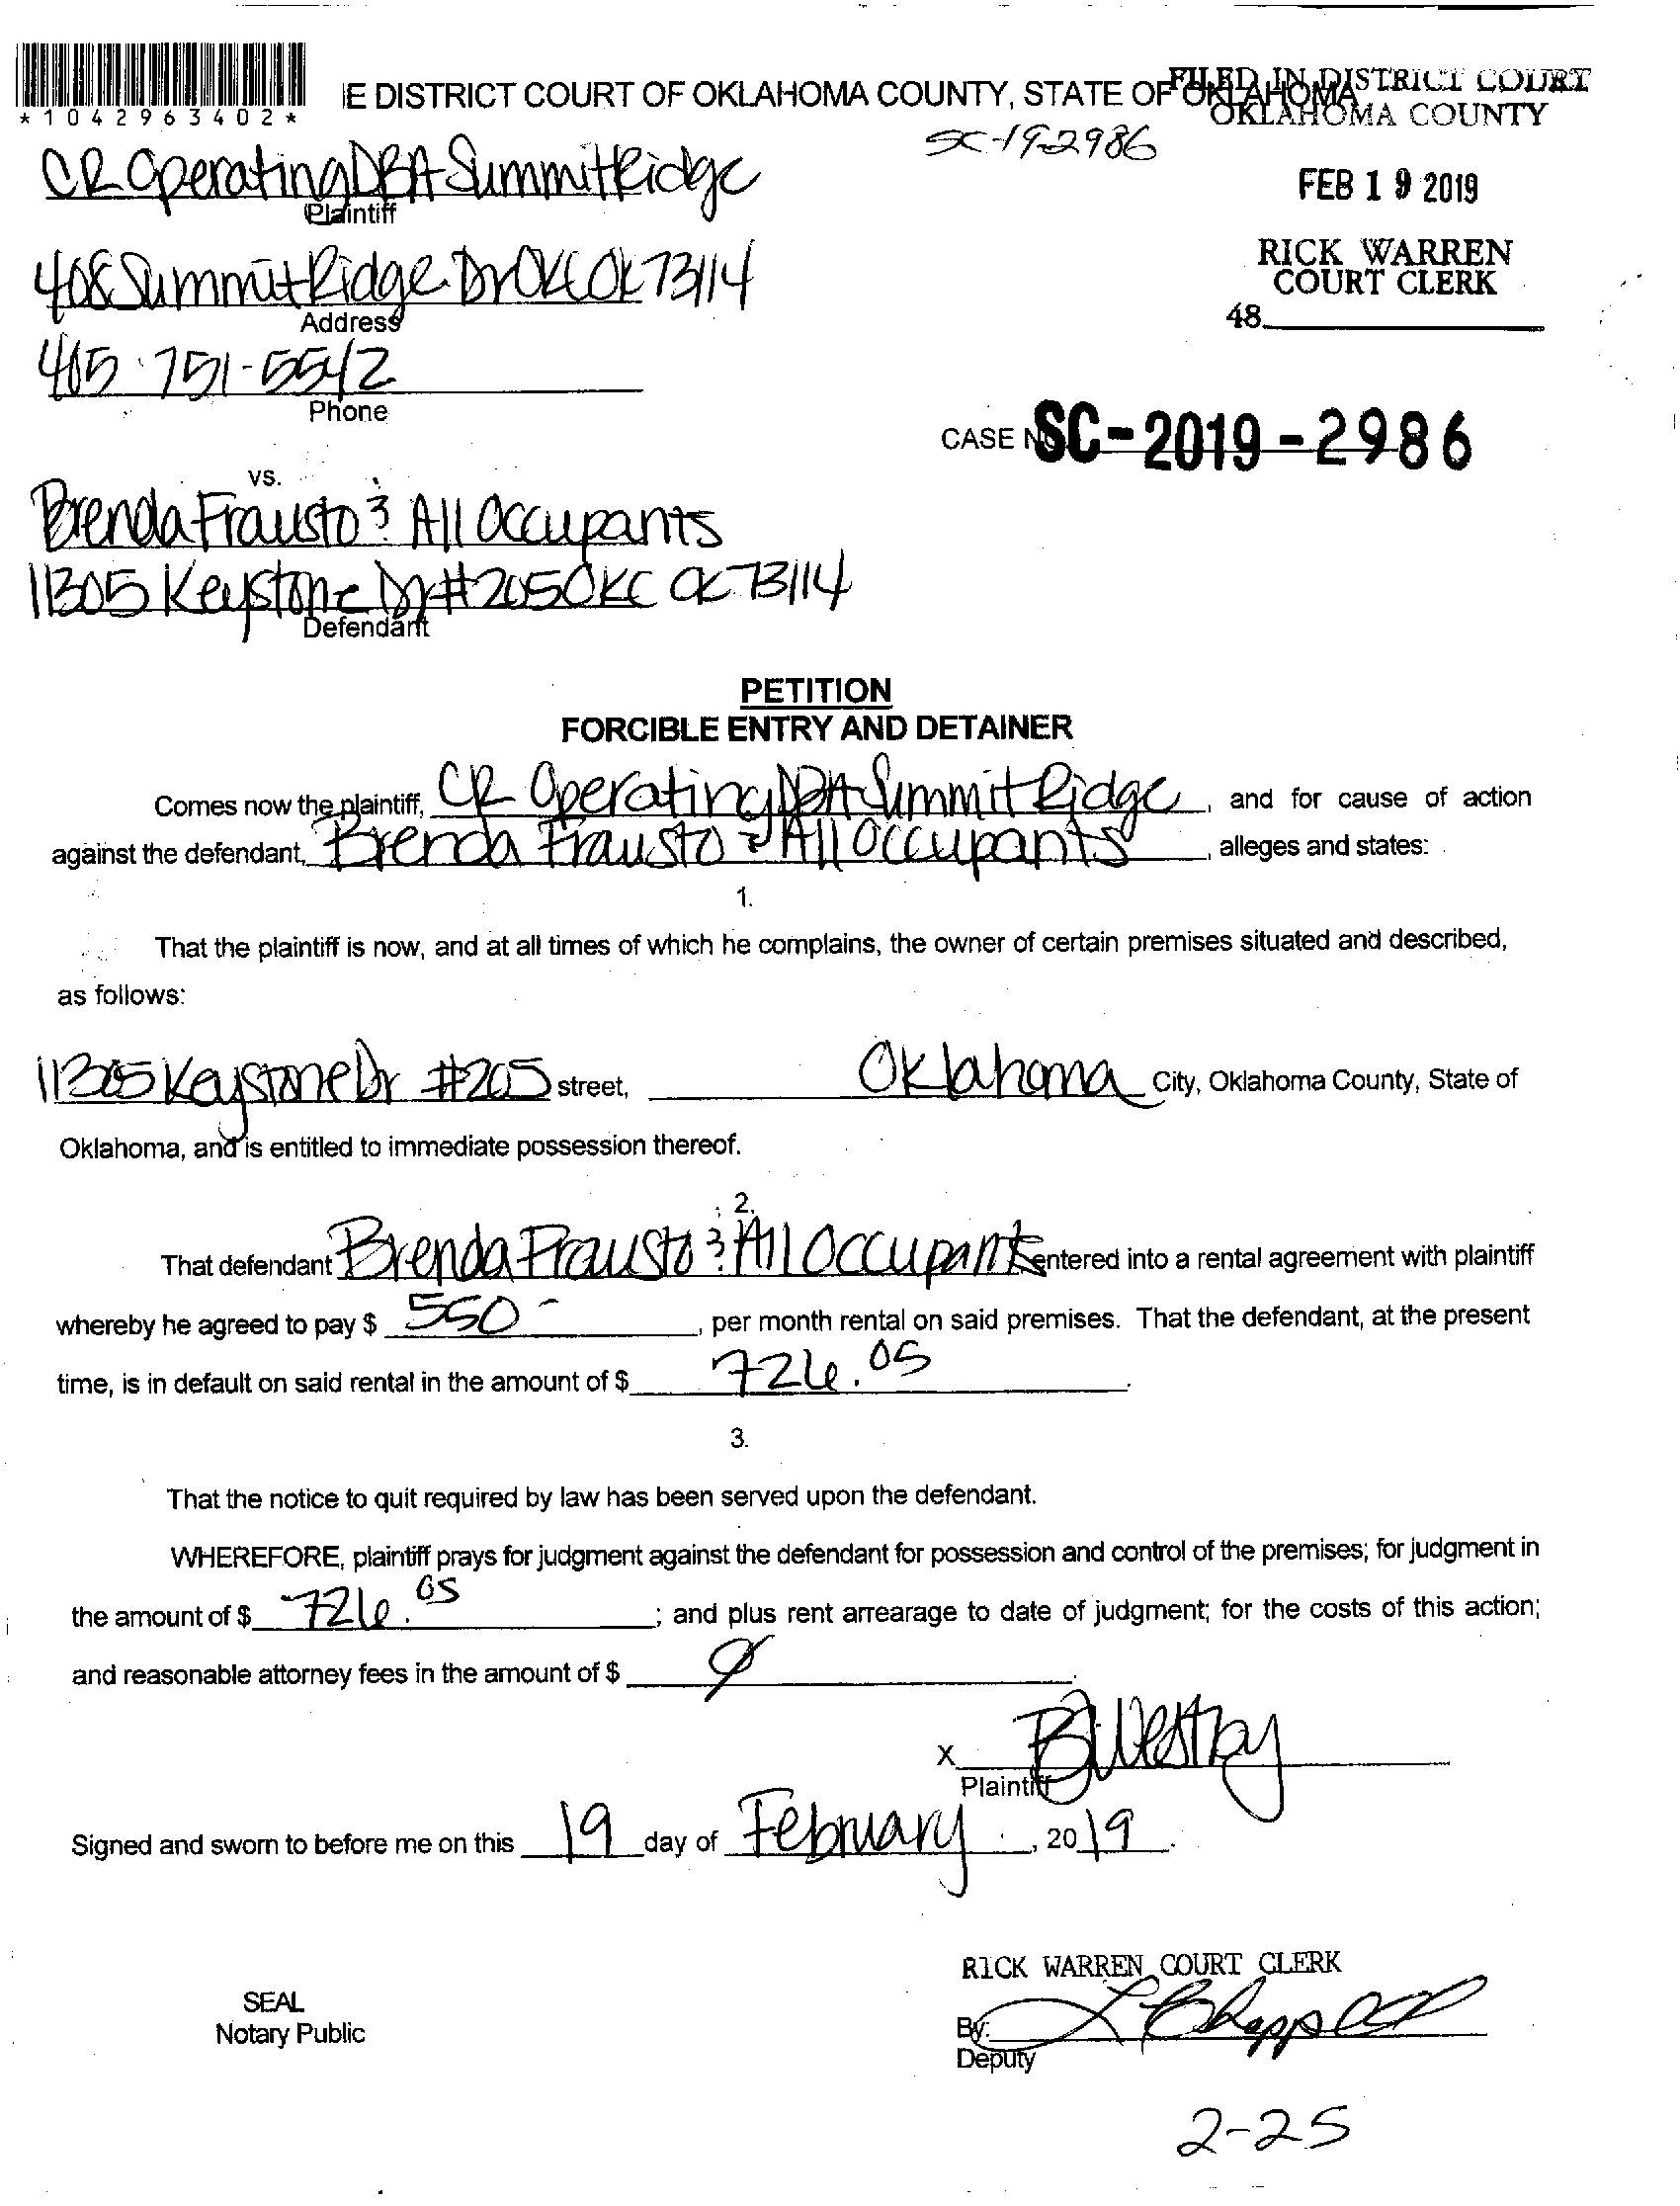 *1042963402*
IE DISTRICT COURT OF OKLAHOMA COUNTY, STATE OF OKLAHOMA
FILED IN DISTRICT COURT
OKLAHOMA COUNTY
SC-19-2986
FEB 19 2019
RICK WARREN
COURT CLERK
48
CR Operating DBA Summit Ridge
Plaintiff
408 Summit Ridge Dr OKC OK 73114
Address
405 751-5542
Phone
CASE NO. SC-2019-2986
vs.
Brenda Frausto & All Occupants
11305 Keystone Dr #205 OKC OK 73114
Defendant
PETITION
FORCIBLE ENTRY AND DETAINER
Comes now the plaintiff, CR Operating DBA Summit Ridge, and for cause of action
against the defendant, Brenda Frausto & All Occupants, alleges and states:
1.
That the plaintiff is now, and at all times of which he complains, the owner of certain premises situated and described,
as follows:
11305 Keystone Dr #205 street, Oklahoma City, Oklahoma County, State of
Oklahoma, and is entitled to immediate possession thereof.
2.
That defendant Brenda Frausto & All Occupants entered into a rental agreement with plaintiff
whereby he agreed to pay $ 550-, per month rental on said premises. That the defendant, at the present
time, is in default on said rental in the amount of $ 726.05.
3.
That the notice to quit required by law has been served upon the defendant.
WHEREFORE, plaintiff prays for judgment against the defendant for possession and control of the premises; for judgment in
the amount of $ 726.05; and plus rent arrearage to date of judgment; for the costs of this action;
and reasonable attorney fees in the amount of $ Ø.
X
Plaintiff
Signed and sworn to before me on this 19 day of February, 2019.
RICK WARREN COURT CLERK
SEAL
Notary Public
By:
Deputy
2-25